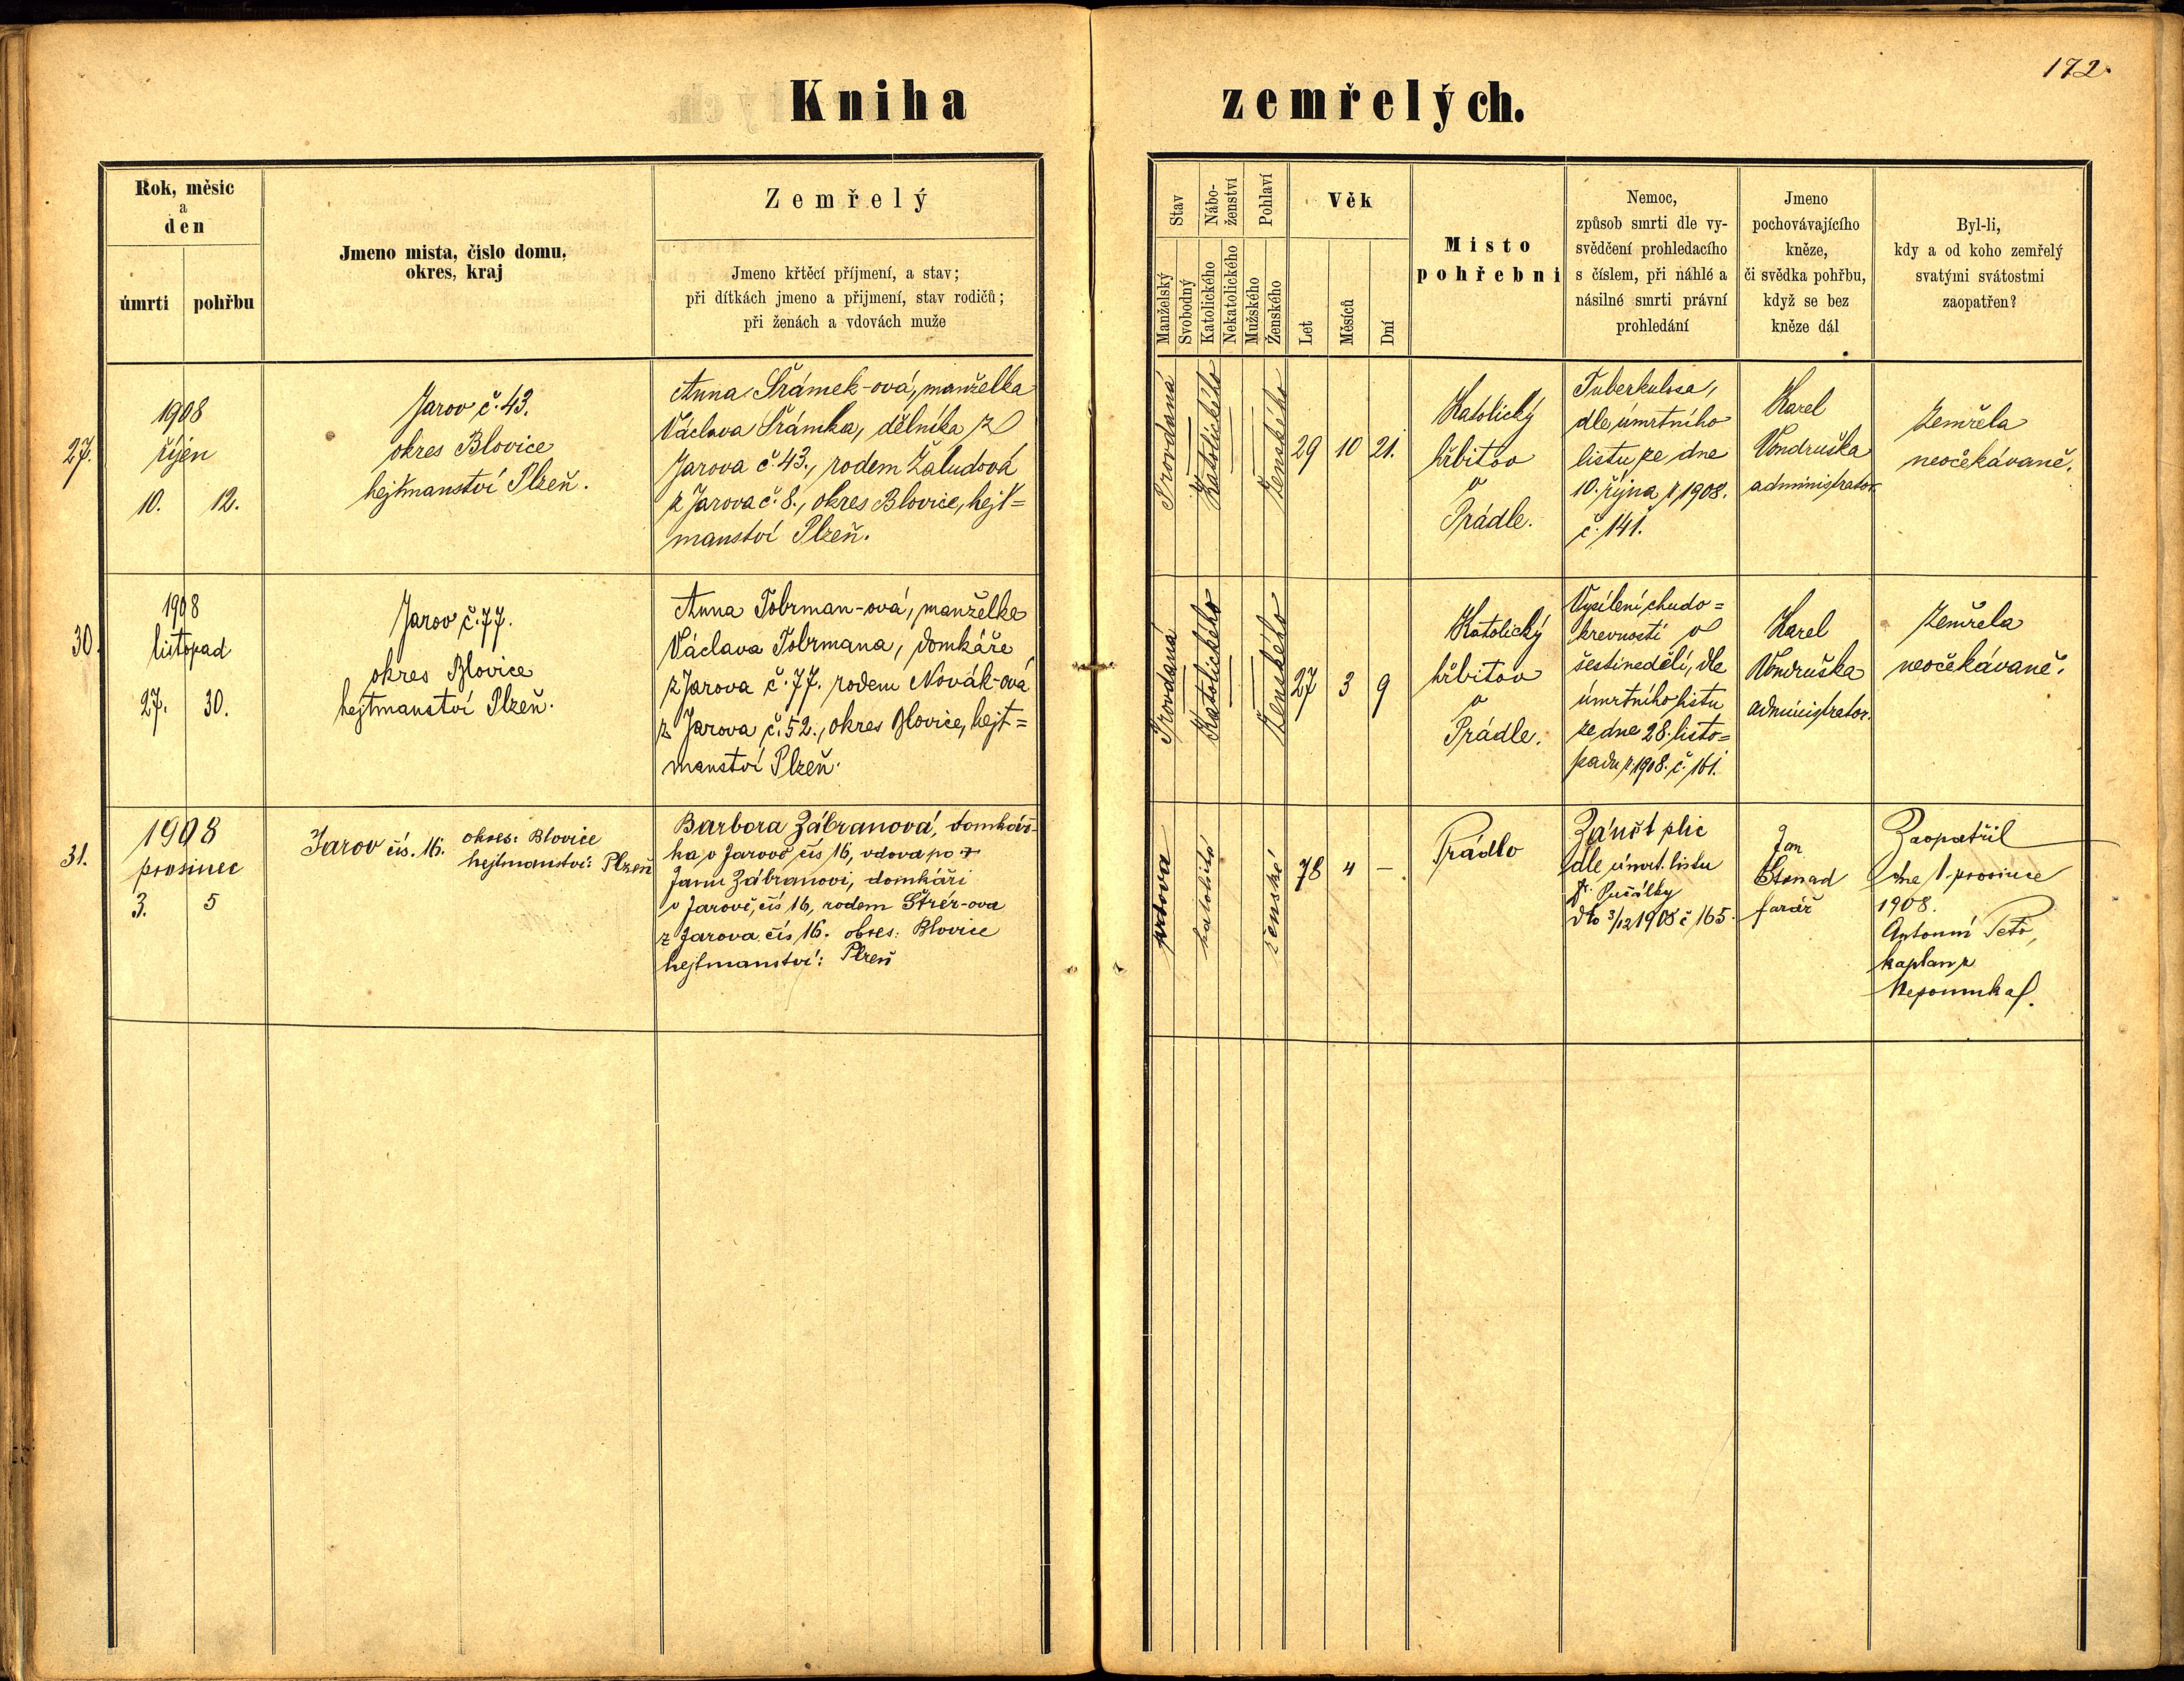 172.
Kniha zemřelých.
Rok, měsíc
a
den
úmrtí
pohřbu
Jmeno mista, číslo domu,
okres, kraj
Zemřelý
Jmeno křtěcí příjmení, a stav;
při dítkách jmeno a přijmení, stav rodičů;
při ženách a vdovách muže
Stav
Manželský
Svobodný
Nábo-
ženství
Katolického
Nekatolického
Pohlaví
Mužského
Ženského
Věk
Let
Měsíců
Dní
Misto
pohřebni
Nemoc,
způsob smrti dle vy-
svědčení prohledacího
s číslem, při náhlé a
násilné smrti právní
prohledání
Jmeno
pochovávajícího
kněze,
či svědka pohřbu,
když se bez
kněze dál
Byl-li,
kdy a od koho zemřelý
svatými svátostmi
zaopatřen?
27.
1908
říjen
10. 12.
Jarov č. 43.
okres Blovice
hejtmanství Plzeň.
Anna Šrámek-ová, manželka
Václava Šrámka, dělníka z
Jarova č. 43., rodem Žaludová
z Jarova č. 8., okres Blovice, hejt=
manství Plzeň.
Provdaná
Katolického
Ženského
29 10 21.
Katolický
hřbitov
v
Prádle.
Tuberkulosa,
dle úmrtního
listu ze dne
10. října r 1908.
č. 141.
Karel
Vondruška
administrator
Zemřela
neočekávaně.
30.
1908
listopad
27. 30.
Jarov č. 77.
okres Blovice
hejtmanství Plzeň.
Anna Tobrman-ová, manželka
Václava Tobrmana, domkáře
z Jarova č. 77. rodem Novák-ová
z Jarova č. 52., okres Blovice, hejt=
manství Plzeň.
Provdaná
Katolického
Ženského
27 3 9
Katolický
hřbitov
v
Prádle.
Vysílení chudo=
krevností v
šestinedělí, dle
úmrtního listu
ze dne 28. listo=
padu r 1908. č. 161.
Karel
Vondruška
administrator.
Zemřela
neočekávaně.
31.
1908
prosinec
3. 5
Jarov čís. 16. okres: Blovice
hejtmanství: Plzeň
Barbora Zábranová, domkář-
ka v Jarově čís 16, vdova po †
Janu Zábranovi, domkáři
v Jarově, čís 16, rodem
z Jarova čís 16. okres: Blovice
hejtmanství: Plzeň
vdova
katolické
ženské
78 4 –
Prádlo
Zánět plic
dle úmrt. listu
dto 3/12 1908 č 165.
Jan
farář
Zaopatřil
dne 1 prosince
1908.
Antonín
kaplan z
Nepomuka.